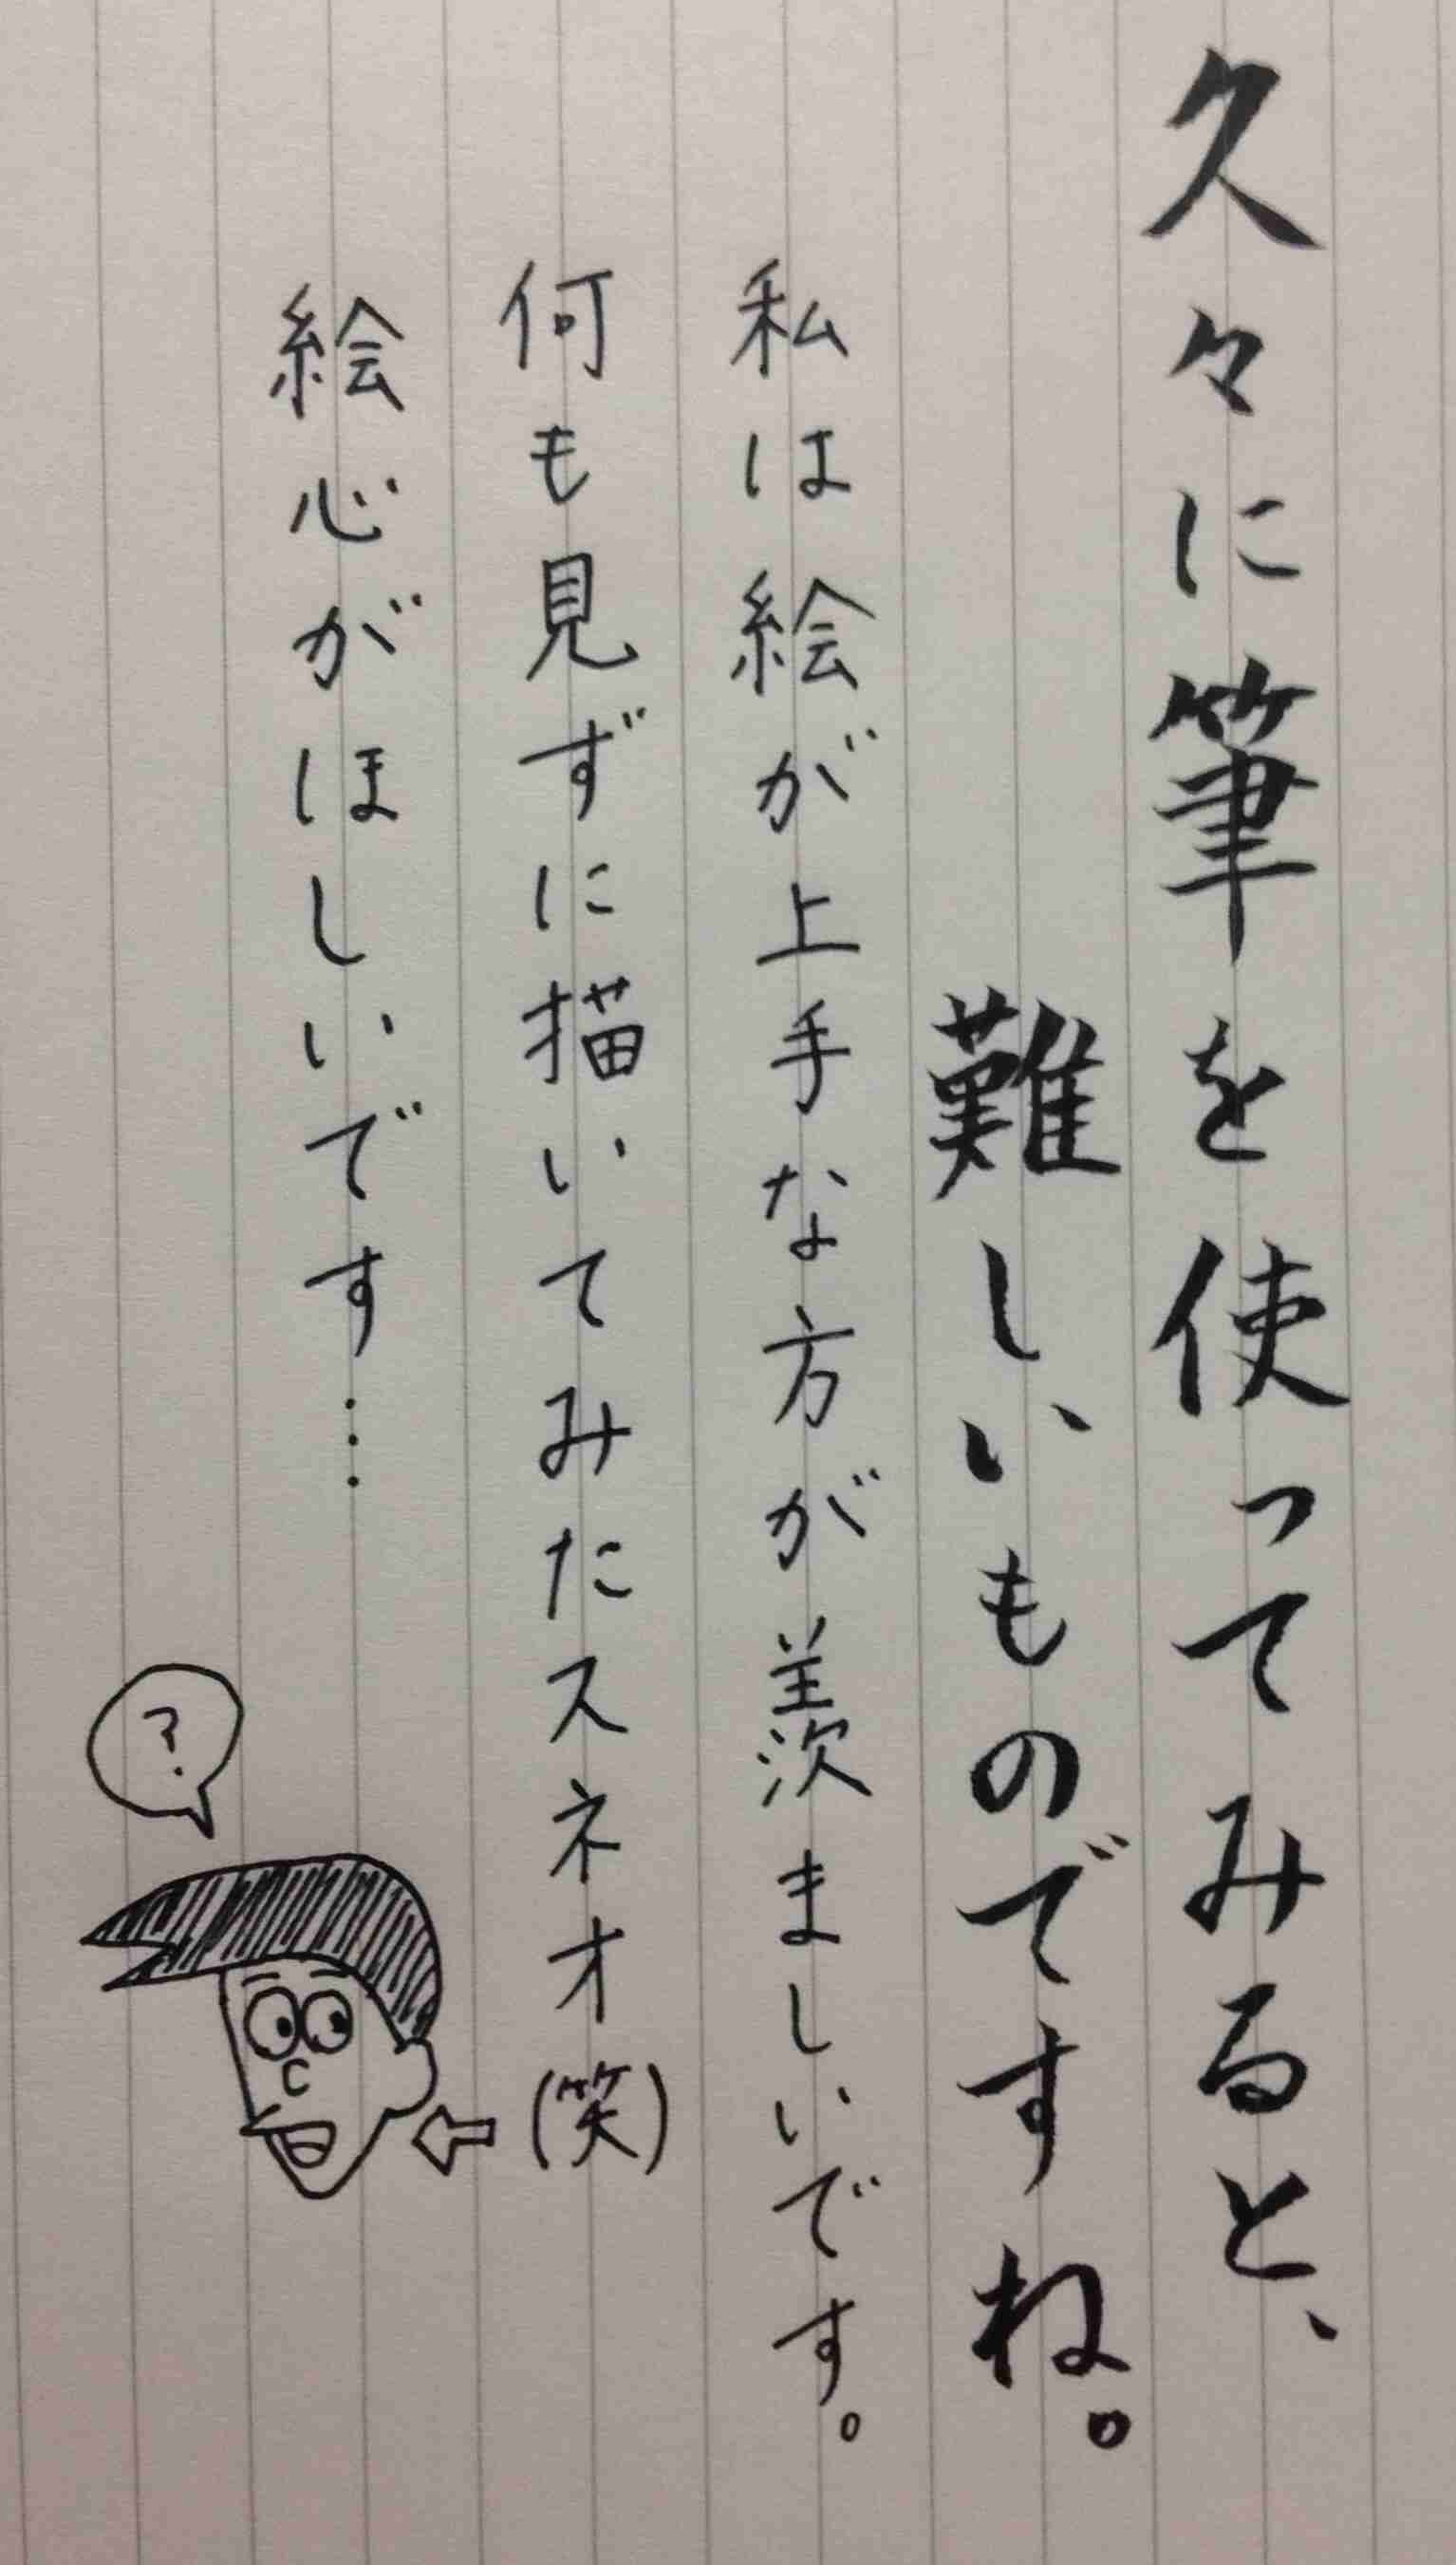 久々に筆を使ってみると、
難しいものですね。
私は絵が上手な方が羨ましいです。
何も見ずに描いてみたスネオ(笑)
絵心がほしいです…
?